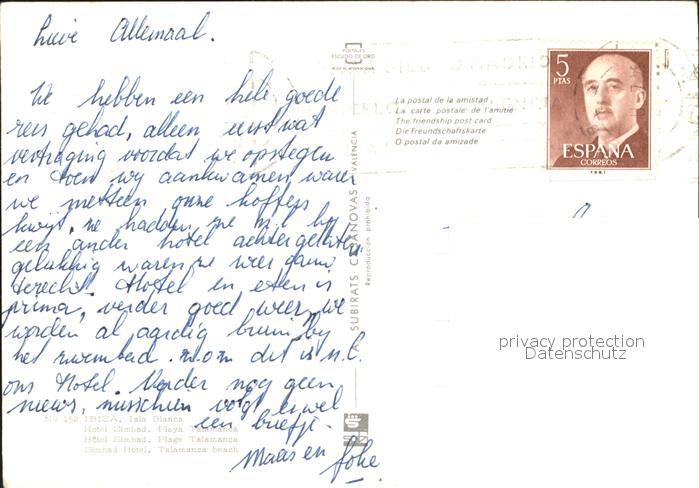 Lieve Allemaal.
We hebben een hele goede
reis gehad, alleen eerst wat
vertraging voordat we opstegen
en toen wij aankwamen waren
we meteen onze koffers
kwijt, ze hadden ze n.l. bij
een ander hotel achtergelaten
gelukkig waren ze weer gauw
terecht. Hotel en eten is
prima, verder goed weer, we
worden al aardig bruin, bij
het zwembad. n.o.m. dit is n.l.
ons Hotel. Verder nog geen
nieuws, misschien volgt er wel
een briefje.
Maas en Joke
No 152 IBIZA, Isla Blanca
Hotel Simbad, Playa Talamanca
Hôtel Simbad, Plage Talamanca
Simbad Hotel, Talamanca beach
POSTALES
ESCUDO DE ORO
A. SUBIRATS CASANOVAS - VALENCIA
Reproducción prohibida
La postal de la amistad
La carte postale de l'amitié
The friendship post card
Die Freundschaftskarte
O postal da amizade
5
PTAS
ESPAÑA
CORREOS
F.N.M.T.
privacy protection
Datenschutz